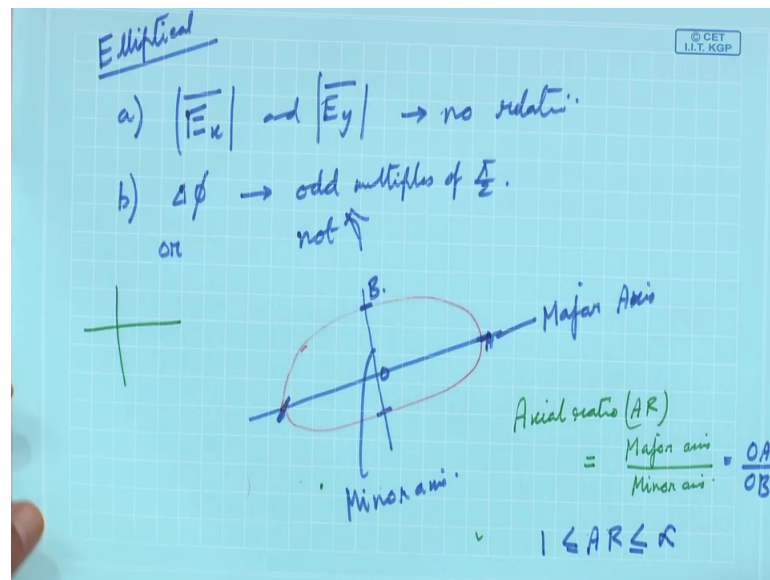 Elliptical
© CET
I.I.T. KGP
a) |E̅x| and |E̅y| → no relati..
b) Δφ → odd multiples of π/2.
or not
B.
Major Axis
A
O
Minor axis.
Axial ratio (AR)
= Major axis / Minor axis. = OA / OB
1 ≤ AR ≤ ∝